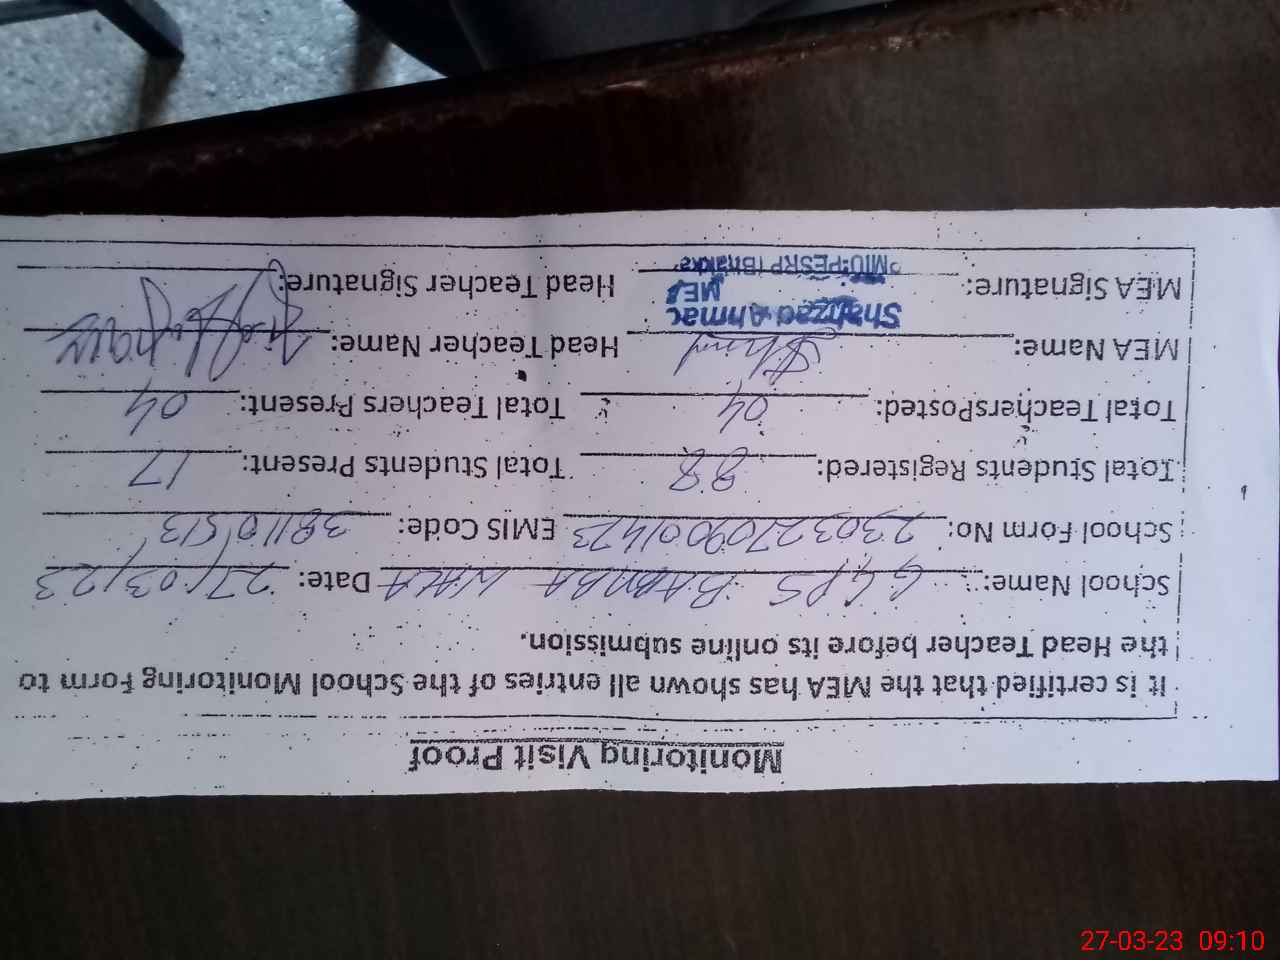 Monitoring Visit Proof
It is certified that the MEA has shown all entries of the School Monitoring Form to
the Head Teacher before its online submission.
School Name: GGPS BAMBA WALA Date: 27/03/23
School Form No: 23032709001423 EMIS Code: 38110513
Total Students Registered: 88 Total Students Present: 17
Total TeachersPosted: 04 Total Teachers Present: 04
MEA Name: Head Teacher Name:
Shahzad Ahmad
MEA
MEA Signature: Head Teacher Signature:
PMIU-PESRP (Bhakkar
27-03-23 09:10